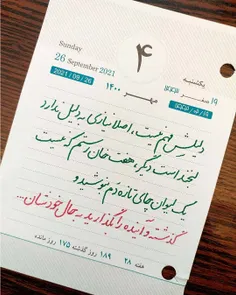 Sunday
26 September 2021
2021 / 09 / 26
۴
مهر ۱۴۰۰
یکشنبه
۱۹ صفر
دلیلش مهم نیست، اصلا نیازی به دلیل ندارد
لبخند است دیگر، هفت خان رستم که نیست
یک لیوان چای تازه دم بنوشید و
گذشته و آینده را بگذارید به حال خودشان...
هفته ۲۸ ۱۸۹ روز گذشته ۱۷۵ روز مانده